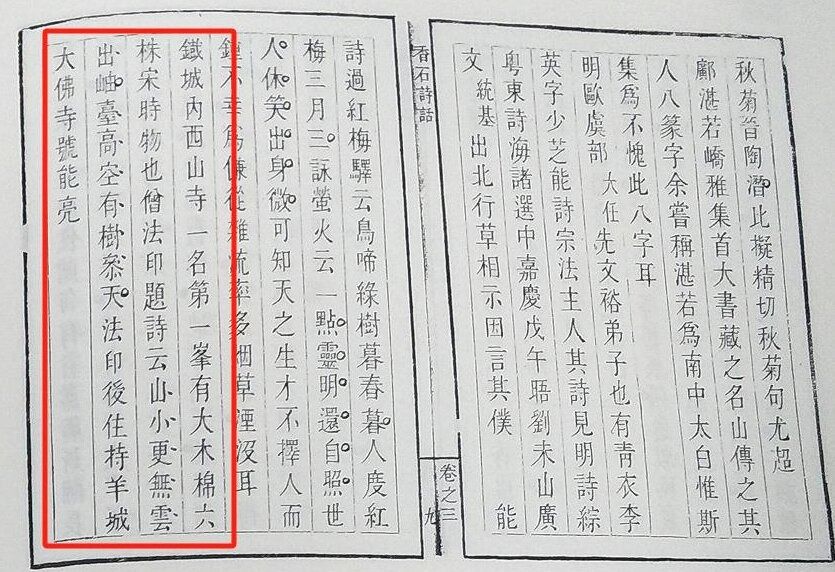 秋菊晉陶潛此擬精切秋菊句尤超
鄺湛若嶠雅集首大書藏之名山傳之其
人八篆字余嘗稱湛若爲南中太白惟斯
集爲不愧此八字耳
明歐虞部大任先文裕弟子也有青衣李
英字少芝能詩宗法主人其詩見明詩綜
粵東詩海諸選中嘉慶戊午晤劉未山廣
文統基出北行草相示因言其僕能
香石詩話
卷之三
九
詩過紅梅驛云鳥啼綠樹暮春暮人度紅
梅三月三詠螢火云一點靈明還自照世
人休笑出身微可知天之生才不擇人而
鍾不幸爲傔從雜流率多烟草湮沒耳
鐵城內西山寺一名第一峯有大木棉六
株宋時物也僧法印題詩云山小更無雲
出岫臺高空有樹叅天法印後住持羊城
大佛寺號能亮